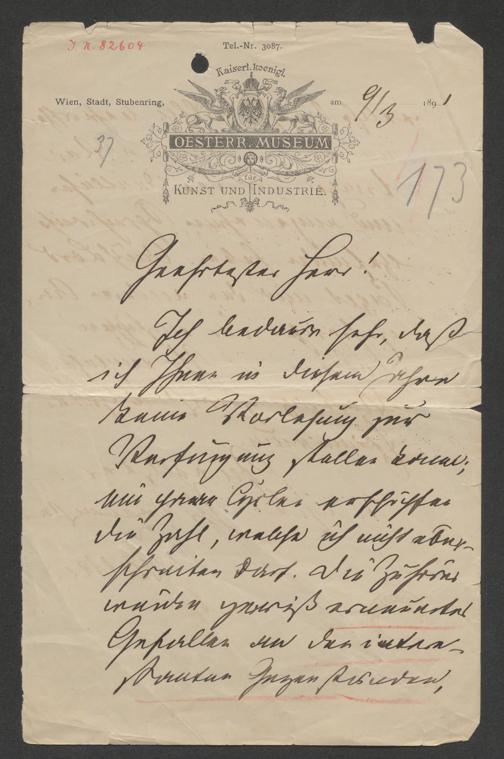 J. N. 82609
Tel.-Nr. 3087.
Kaiserl. koenigl.
Wien, Stadt, Stubenring, am 9/3 1891
37
OESTERR. MUSEUM
FUER
KUNST UND INDUSTRIE.
173
Geehrtester Herr!
Ich bedaure sehr, daß
ich Ihnen in diesem Jahre
keine Vorlesung zur
Verfügung stellen kann;
die Zahl, welche ich nicht über-
schreiten darf. Die Zuhörer
werden gewiß
Gefallen an den interes-
santen Gegenständen,